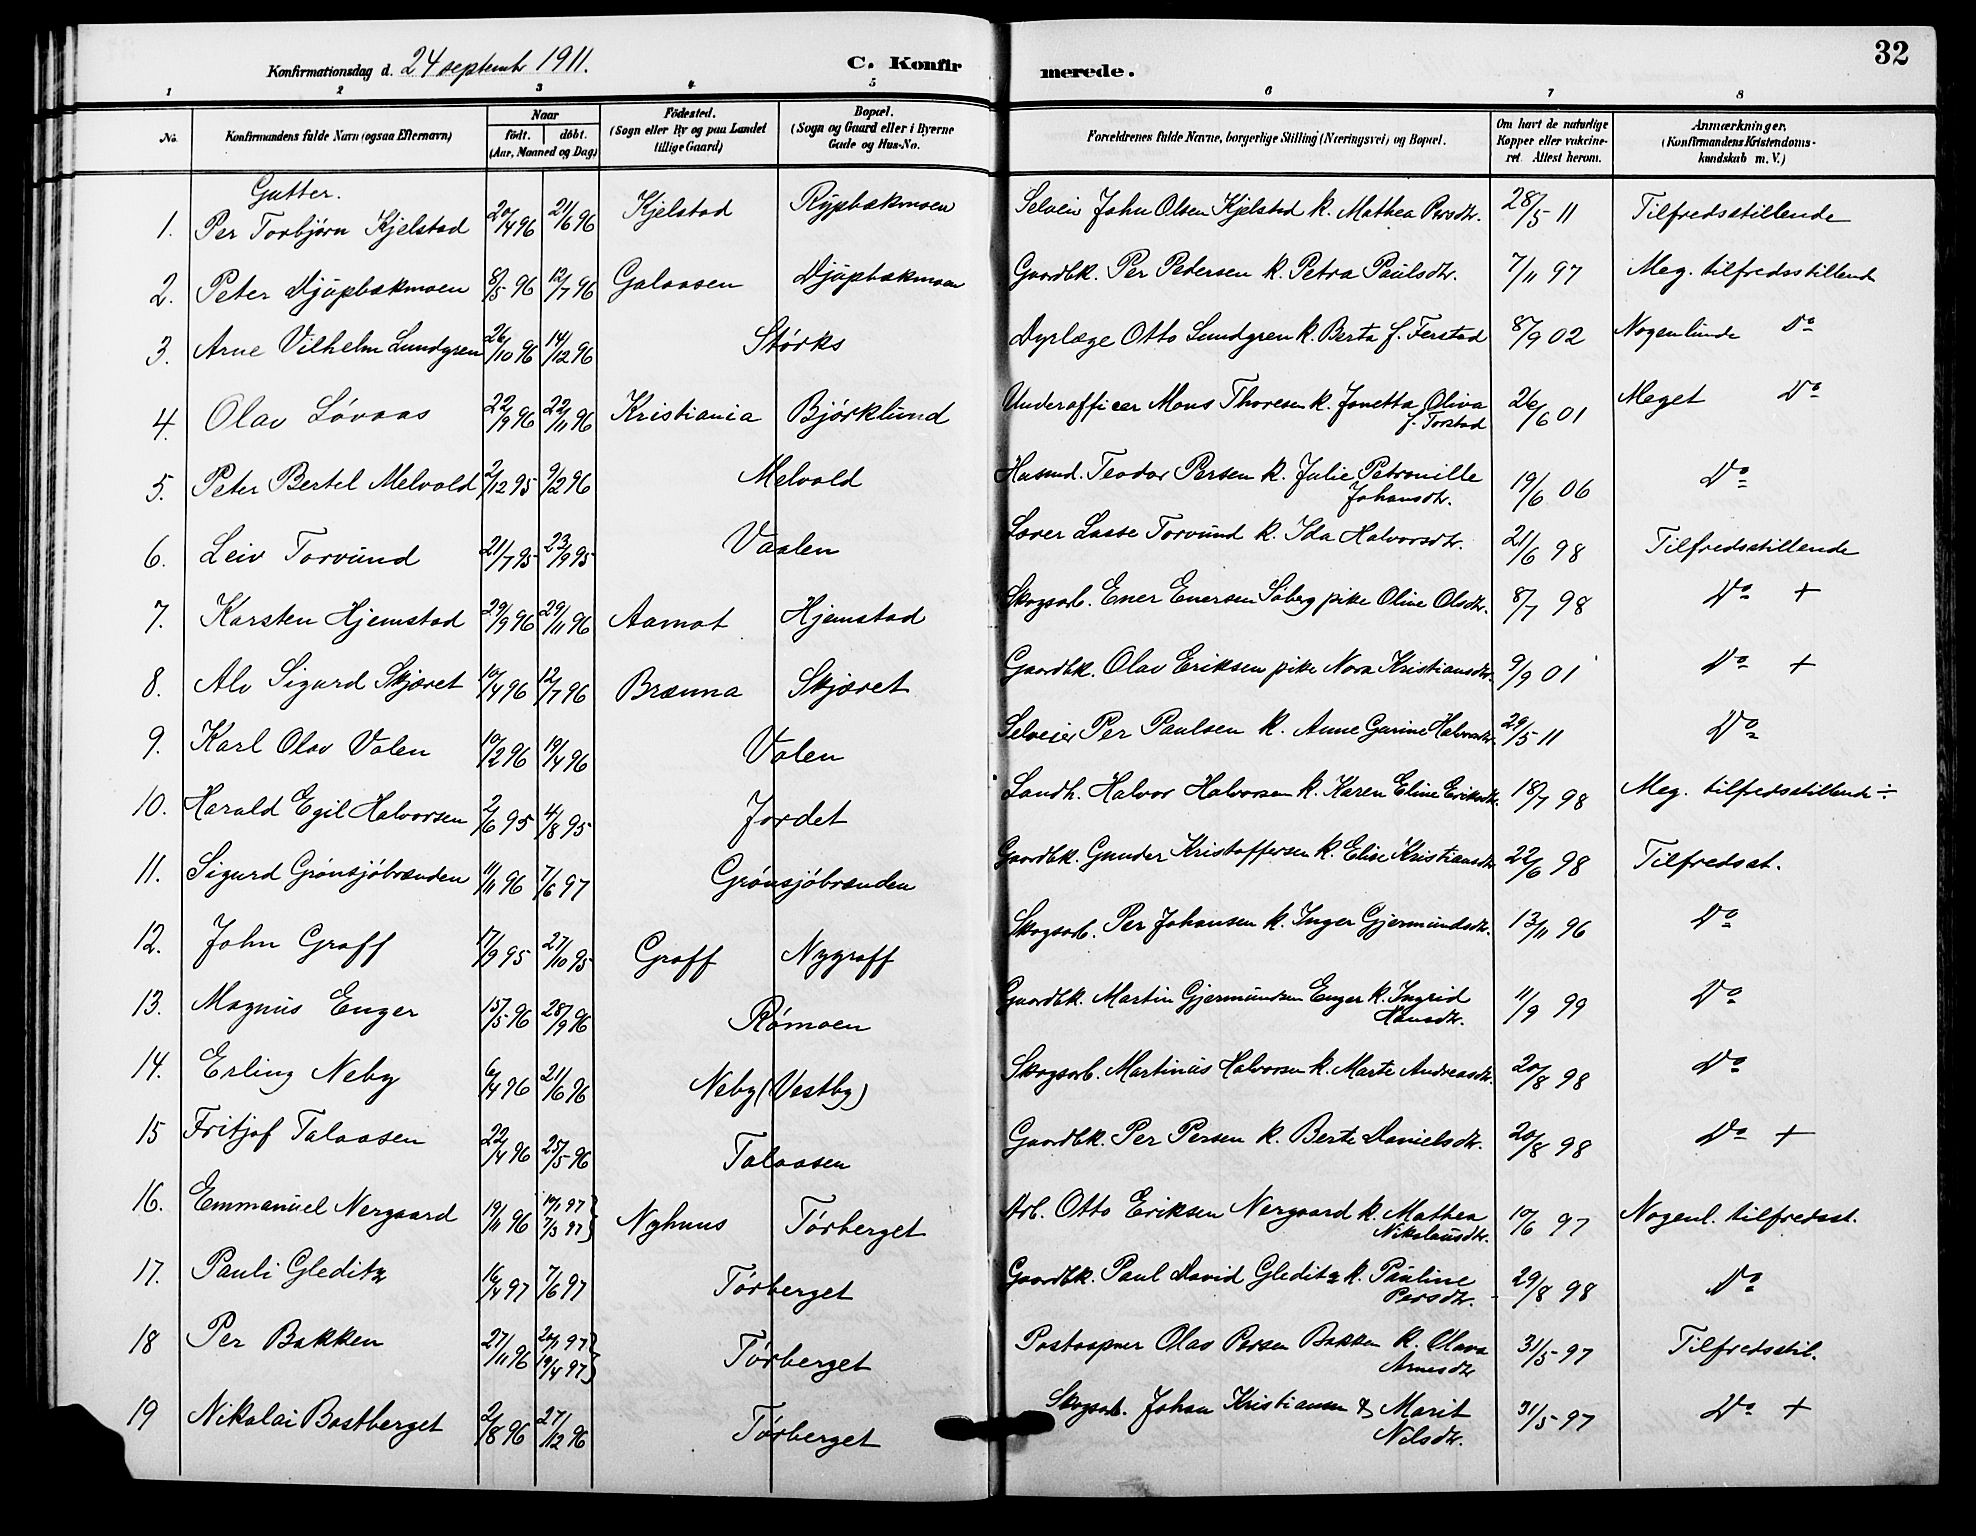 32
Konfirmationsdag d. 24 septembr 1911. C. Konfirmerede.
1 2 3 4 5 6 7 8
No. Konfirmandens fulde Navn (ogsaa Efternavn) Naar födt. döbt. (Aar, Maaned og Dag) Födested. (Sogn eller By og paa Landet tillige Gaard) Bopæl. (Sogn og Gaard eller i Byerne Gade og Hus-No. Forældrenes fulde Navne, borgerlige Stilling (Næringsvei) og Bopæl. Om havt de naturlige Kopper eller vakcineret. Attest herom. Anmærkninger. (Konfirmandens Kristendomskundskab m. V.)
Gutter.
1. Per Torbjørn Kjelstad 20/4 96 21/6 96 Kjelstad Selveier John Olsen Kjelstad k. Mathea Persdtr. 28/5 11 Tilfredsstillende
2. Peter Djupbakmoen 8/5 96 12/7 96 Galaasen Djupbakmoen Gaardbk. Per Pedersen k. Petra Paulsdtr. 7/11 97 Meg. tilfredsstillend
3. Arne Vilhelm Lundgren 26/10 96 14/12 96 Størks Dyrlæge Otto Lundgren k. Berta f. Ferstad 8/9 02 Nogenlunde Do
4. Olav Lövaas 22/9 96 22/11 96 Kristiania Björklund Underofficer Mons Thoresen k. Jonetta Oliva f. Torstad 26/6 01 Meget Do
5. Peter Bertel Melvold 2/12 95 9/2 96 Melvold Husmd. Teodor Persen k. Julie Petronille Johansdtr. 19/6 06 Do
6. Leiv Torvund 21/7 95 23/9 95 Vaalen Lærer Lasse Torvund k. Ida Halvorsdtr. 21/6 98 Tilfredsstillende
7. Karsten Hjemstad 29/9 96 29/11 96 Aamot Hjemstad Skogsarb. Ener Enersen Söberg pike Oline Olsdtr. 8/7 98 Do +
8. Alv Sigurd Skjæret 10/4 96 12/7 96 Brænna Skjæret Gaardbk. Olav Eriksen pike Nora Kristiansdtr. 9/9 01 Do +
9. Karl Olav Valen 10/2 96 19/4 96 Valen Selveier Per Paulsen k. Anne Gurine Halvorsdtr. 29/5 11 Do
10. Harald Egil Halvorsen 2/6 95 4/8 95 Jordet Landh. Halvor Halvorsen k. Karen Eline Eriksdtr. 18/7 98 Meg. tilfredsstillend ÷
11. Sigurd Grönsjöbrænden 11/11 96 7/6 97 Grönsjöbrænden Gaardbk. Gunder Kristoffersen k. Elise Kristiansdtr. 22/6 98 Tilfredsst.
12. John Graff 17/9 95 27/10 95 Graff Nygraff Skogsarb. Per Johansen k. Inger Gjermundsdtr. 13/11 96 Do
13. Magnus Enger 15/5 96 28/9 96 Römoen Gaardbk. Martin Gjermundsen Enger k. Ingrid Hansdtr. 11/9 99 Do
14. Erling Neby 6/4 96 21/6 96 Neby (Vestby) Skogsarb. Martinus Halvorsen k. Marte Andreasdtr. 20/8 98 Do
15 Fritjof Talaasen 22/4 96 25/5 96 Talaasen Gaardbk. Per Persen k. Berte Danielsdtr. 20/8 98 Do +
16. Emmanuel Nergaard 19/11 96 10/1 97 7/3 97 } Nyhuus Törberget Arb. Otto Eriksen Nergaard k. Mathea Nikolausdtr. 10/6 97 Nogenl. tilfredsst.
17. Pauli Gleditz 16/4 97 7/6 97 Törberget Gaardbk. Paul David Gleditz k. Pauline Persdtr. 29/8 98 Do
18 Per Bakken 27/11 96 20/1 97 19/4 97 } Törberget Postaapner Olav Persen Bakken k. Olava Arnesdtr 31/5 97 Tilfredsstil.
19 Nikolai Bastberget 2/8 96 27/12 96 Törberget Skogsarb. Johan Kristiansen & Marit Nilsdtr. 31/5 97 Do +